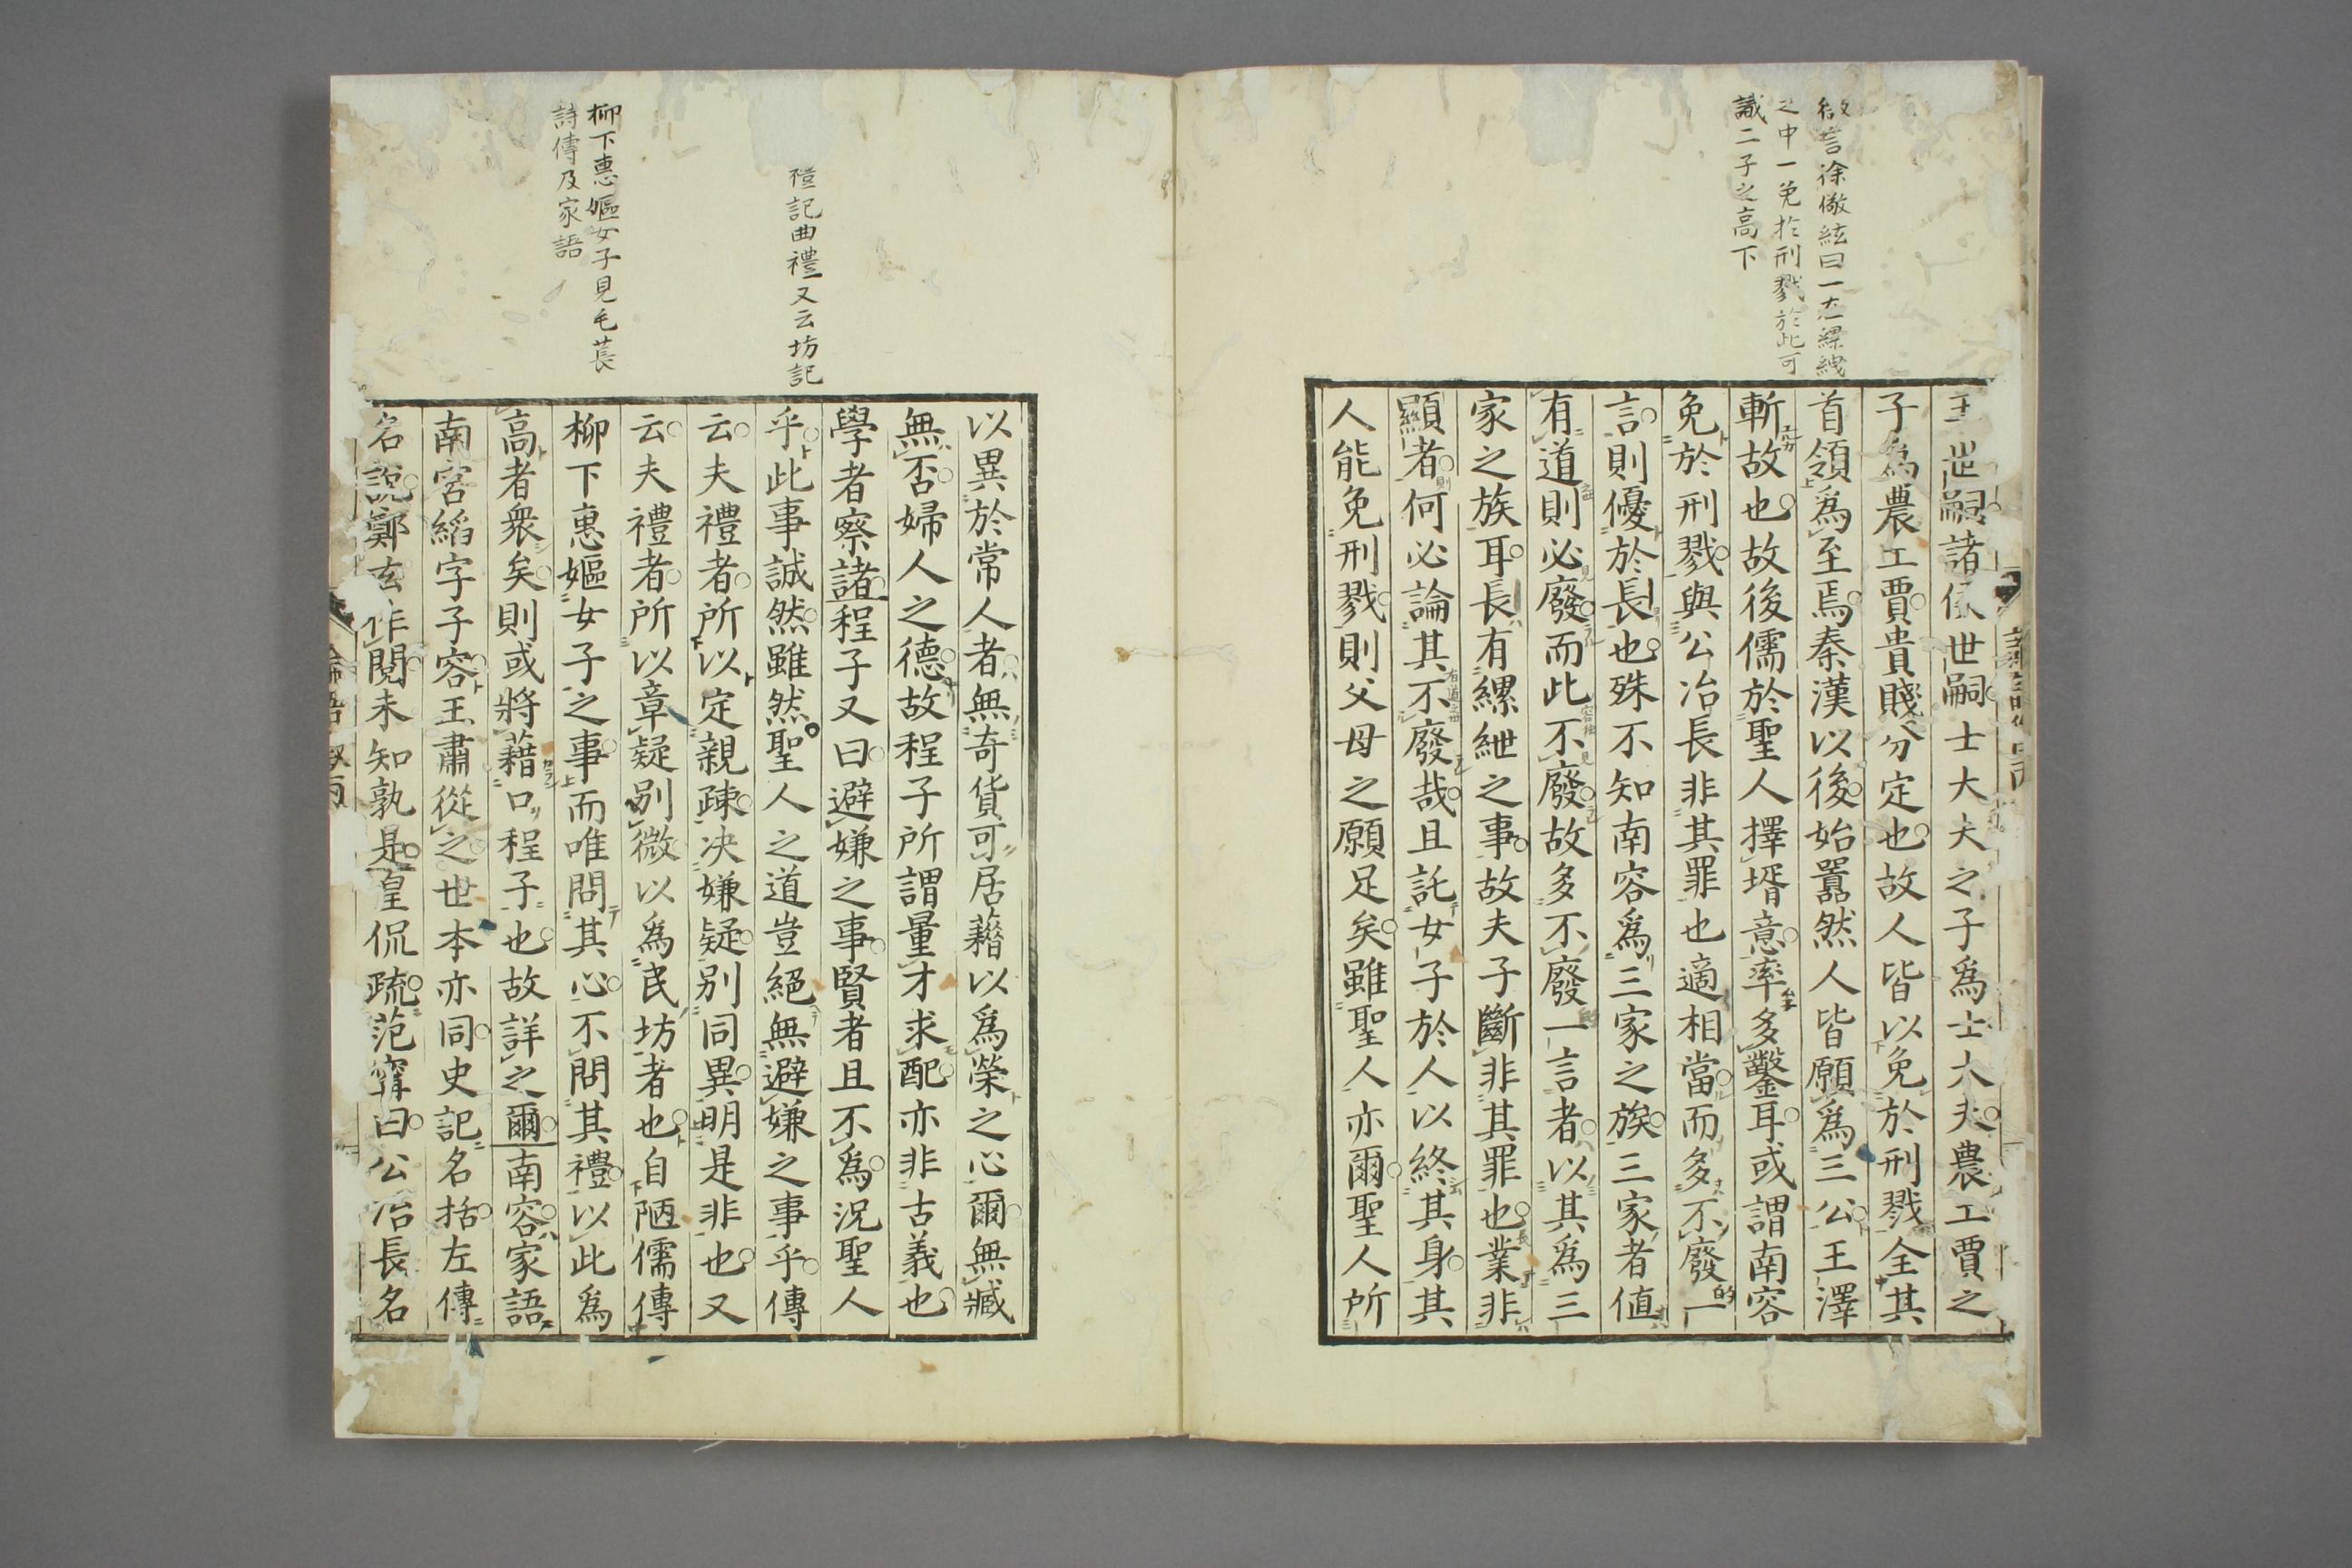 徴言徐儆絃曰一在縲絏
之中一免於刑戮於此可
識二子之高下
王世嗣諸侯世嗣士大夫之子爲士大夫農工賈之
子爲農工賈貴賤分定也故人皆以免於刑戮全其
首領爲至焉秦漢以後始囂然人皆願爲三公王澤
斬故也故後儒於聖人擇壻意率多鑿耳或謂南容
免於刑戮與公冶長非其罪也適相當而多不廢一
言則優於長也殊不知南容爲三家之族三家者値
有道則必廢而此不廢故多不廢一言者以其爲三
家之族耳長有縲紲之事故夫子斷非其罪也業非
顯者何必論其不廢哉且託女子於人以終其身其
人能免刑戮則父母之願足矣雖聖人亦爾聖人所
禮記曲禮又云坊記
柳下惠嫗女子見毛萇
詩傳及家語
以異於常人者無奇貨可居藉以爲榮之心爾無臧
無否婦人之德故程子所謂量才求配亦非古義也
學者察諸程子又曰避嫌之事賢者且不爲況聖人
乎此事誠然雖然聖人之道豈絕無避嫌之事乎傳
云夫禮者所以定親疎决嫌疑别同異明是非也又
云夫禮者所以章疑别微以爲民坊者也自陋儒傳
柳下惠嫗女子之事而唯問其心不問其禮以此爲
高者衆矣則或將藉口程子也故詳之爾南容家語
南宮縚字子容王肅從之世本亦同史記名括左傳
名說鄭玄作閱未知孰是皇侃疏范甯曰公冶長名